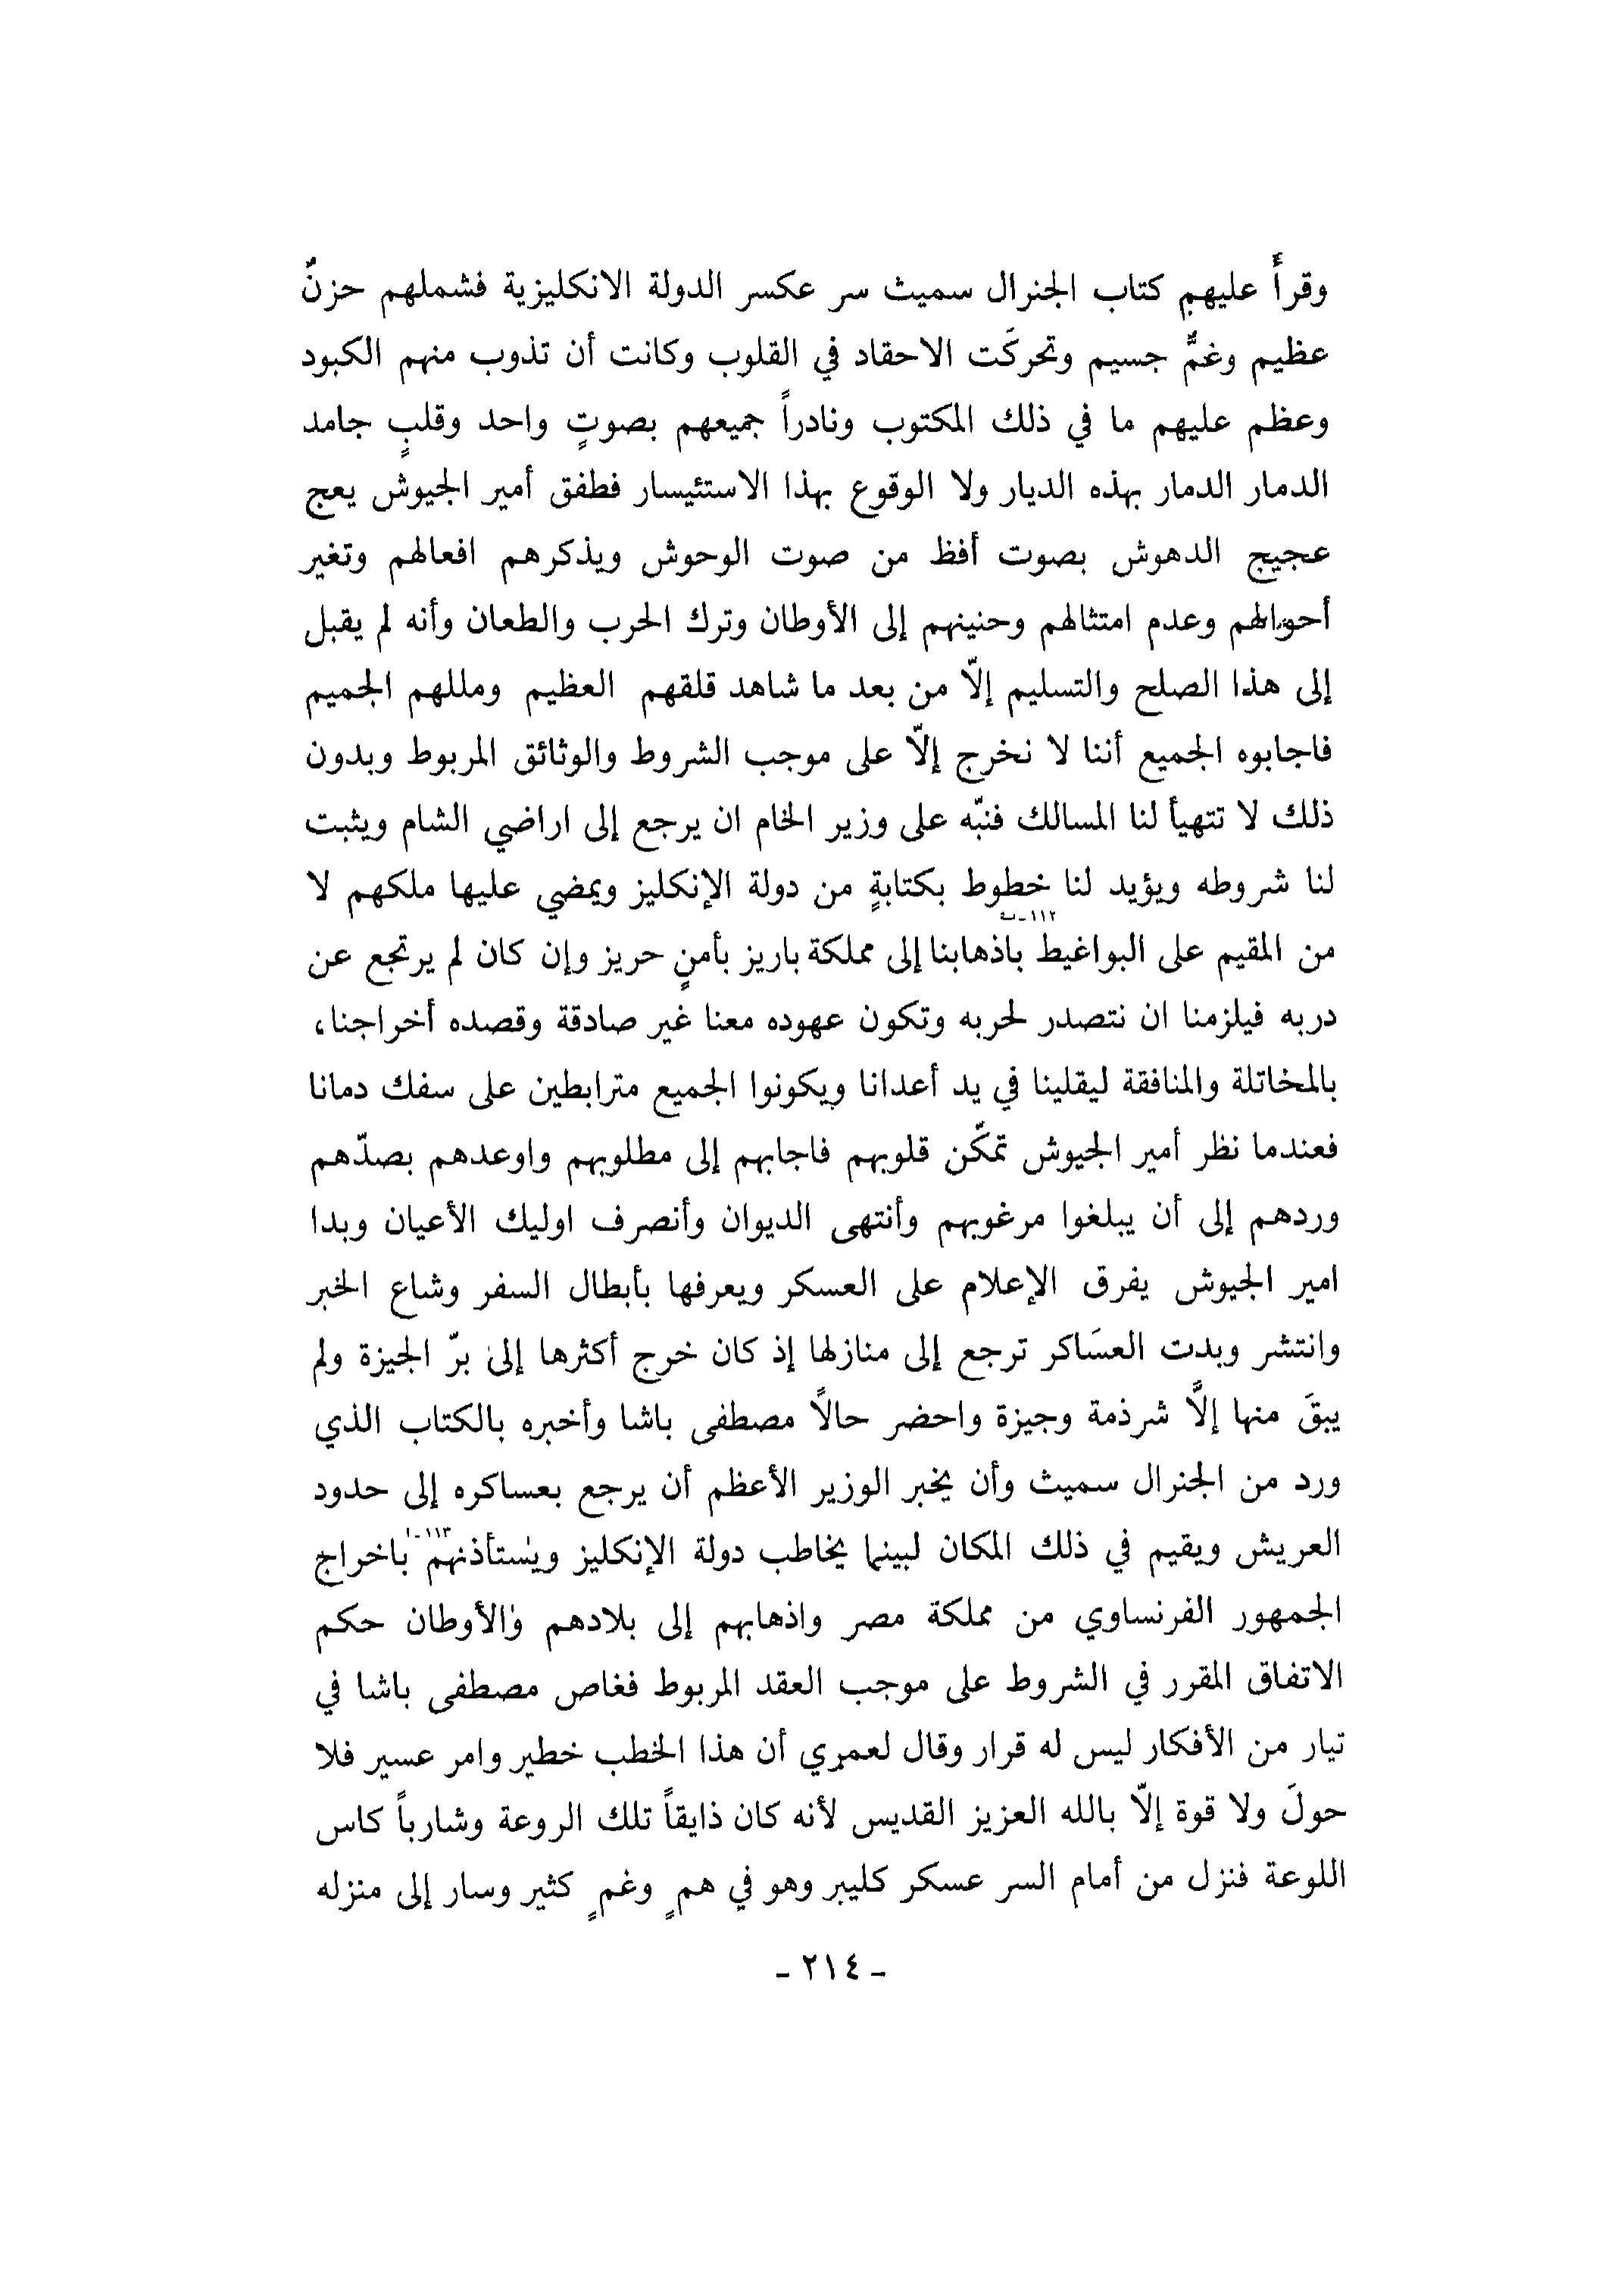 وقرأَ عليهم كتاب الجنرال سميث سر عكسر الدولة الانكليزية فشملهم حزنٌ
عظيم وغمٌّ جسيم وتحركَت الاحقاد في القلوب وكانت أن تذوب منهم الكبود
وعظم عليهم ما في ذلك المكتوب ونادراً جميعهم بصوتٍ واحد وقلبٍ جامد
الدمار الدمار بهذه الديار ولا الوقوع بهذا الاستئيسار فطفق أمير الجيوش يعج
عجيج الدهوش بصوت أفظ من صوت الوحوش ويذكرهم افعالهم وتغير
أحوالهم وعدم امتثالهم وحنينهم إلى الأوطان وترك الحرب والطعان وأنه لم يقبل
إلى هذا الصلح والتسليم إلّا من بعد ما شاهد قلقهم العظيم ومللهم الجميم
فاجابوه الجميع أننا لا نخرج إلّا على موجب الشروط والوثائق المربوط وبدون
ذلك لا تتهيأ لنا المسالك فنبّه على وزير الخام ان يرجع إلى اراضي الشام ويثبت
لنا شروطه ويؤيد لنا خطوط بكتابةٍ من دولة الإنكليز ويمضي عليها ملكهم لا
١١٢-ب
من المقيم على البواغيط باذهابنا إلى مملكة باريز بأمنٍ حريز وإن كان لم يرتجع عن
دربه فيلزمنا ان نتصدر لحربه وتكون عهوده معنا غير صادقة وقصده أخراجنا،
بالمخاتلة والمنافقة ليقلينا في يد أعدانا ويكونوا الجميع مترابطين على سفك دمانا
فعندما نظر أمير الجيوش تمكّن قلوبهم فاجابهم إلى مطلوبهم واوعدهم بصدّهم
وردهم إلى أن يبلغوا مرغوبهم وأنتهى الديوان وأنصرف اوليك الأعيان وبدا
امير الجيوش يفرق الإعلام على العسكر ويعرفها بأبطال السفر وشاع الخبر
وانتشر وبدت العسَاكر ترجع إلى منازلها إذ كان خرج أكثرها إلى برّ الجيزة ولم
يبقَ منها إلَّا شرذمة وجيزة واحضر حالاً مصطفى باشا وأخبره بالكتاب الذي
ورد من الجنرال سميث وأن يخبر الوزير الأعظم أن يرجع بعساكره إلى حدود
العريش ويقيم في ذلك المكان لبينما يخاطب دولة الإنكليز ويستأذنهم ١١٣-ا باخراج
الجمهور الفرنساوي من مملكة مصر واذهابهم إلى بلادهم والأوطان حكم
الاتفاق المقرر في الشروط على موجب العقد المربوط فغاص مصطفى باشا في
تيار من الأفكار ليس له قرار وقال لعمري أن هذا الخطب خطير وامر عسير فلا
حولَ ولا قوة إلّا بالله العزيز القديس لأنه كان ذايقاً تلك الروعة وشارباً كاس
اللوعة فنزل من أمام السر عسكر كليبر وهو في همٍ وغمٍ كثير وسار إلى منزله
- ٢١٤ -